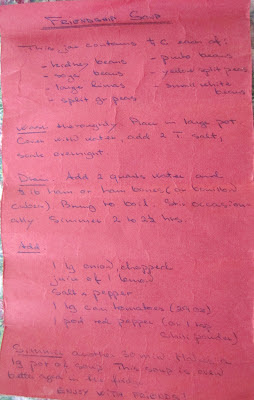 FRIENDSHIP SOUP
This jar contains ½ c. each of:
- kidney beans - pinto beans
- soya beans - yellow split peas
- large limas - small white
- split gr. peas beans
Wash: thoroughly. Place in large pot.
Cover with water, add 2 T. salt,
soak overnight.
Drain: Add 2 quarts water and
lb ham or ham bones (or bouillon
cubes). Bring to boil. Stir occasion-
ally. Simmer 2 to 2½ hrs.
Add:
1 lg onion, chopped
juice of 1 lemon
salt & pepper
1 lg can tomatoes (28 oz)
1 pod red pepper (or 1 tsp
chili powder)
Simmer: another 30 min. Makes a
lg pot of soup. This soup is even
better again in the
ENJOY WITH FRIENDS!